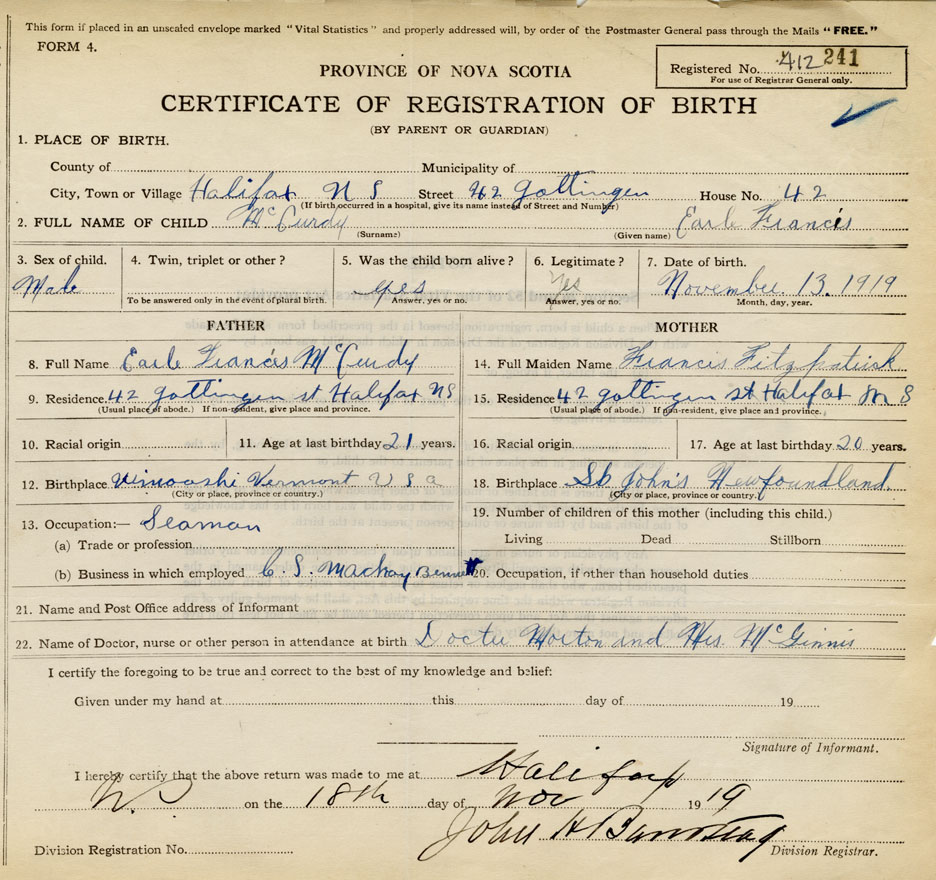 This form if placed in an unsealed envelope marked "Vital Statistics" and properly addressed will, by order of the Postmaster General pass through the Mails "FREE."
FORM 4.
Registered No. 412 241
For use of Registrar General only.
PROVINCE OF NOVA SCOTIA
CERTIFICATE OF REGISTRATION OF BIRTH
(BY PARENT OR GUARDIAN)
1. PLACE OF BIRTH.
County of Municipality of
City, Town or Village Halifax N S Street 42 Gottingen House No. 42
(If birth occurred in a hospital, give its name instead of Street and Number)
2. FULL NAME OF CHILD McCurdy Earle Francis
(Surname) (Given name)
3. Sex of child. 4. Twin, triplet or other? 5. Was the child born alive? 6. Legitimate? 7. Date of birth.
Male Yes Yes November 13. 1919
To be answered only in the event of plural birth. Answer, yes or no. Answer, yes or no. Month, day, year.
FATHER MOTHER
8. Full Name Earle Francis McCurdy 14. Full Maiden Name Francis Fitzpatrick
9. Residence 42 Gottingen st Halifax NS 15. Residence 42 Gottingen st Halifax N S
(Usual place of abode.) If non-resident, give place and province. (Usual place of abode.) If non-resident, give place and province.
10. Racial origin 11. Age at last birthday 21 years. 16. Racial origin 17. Age at last birthday 20 years.
12. Birthplace Vermont U S a 18. Birthplace St John's Newfoundland.
(City or place, province or country.) (City or place, province or country.)
13. Occupation:— Seaman 19. Number of children of this mother (including this child.)
(a) Trade or profession Living Dead Stillborn
(b) Business in which employed C. S. Mackay Bennett 20. Occupation, if other than household duties
21. Name and Post Office address of Informant
22. Name of Doctor, nurse or other person in attendance at birth Docter Morton and Mrs. McGinnis
I certify the foregoing to be true and correct to the best of my knowledge and belief:
Given under my hand at this day of 19
Signature of Informant.
I hereby certify that the above return was made to me at Halifax
on the 18th day of Nov 1919
John H
Division Registration No. Division Registrar.